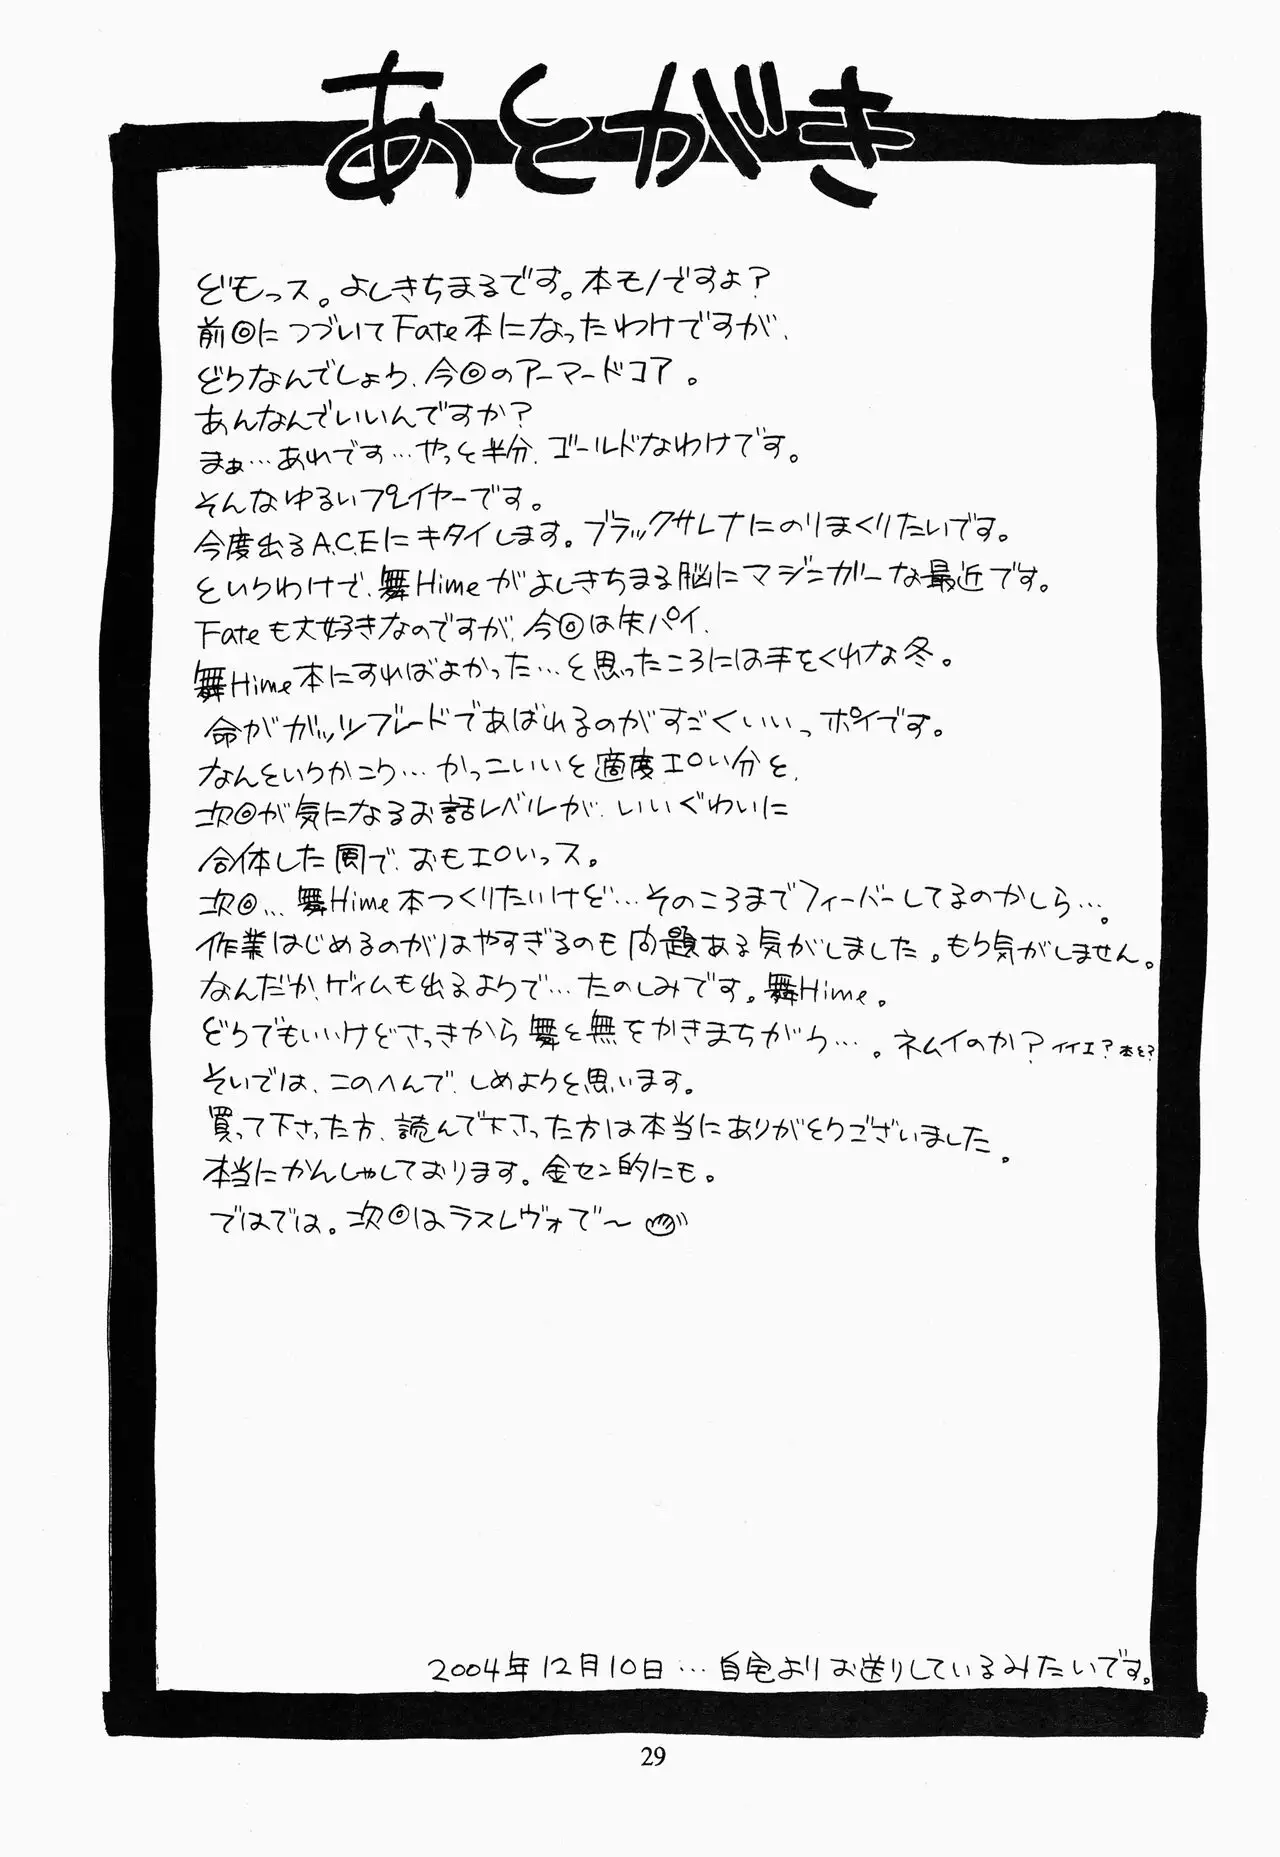 あとがき
どもっス。よしきちまるです。本モノですよ?
前回につづいてFate本になったわけですが、
どうなんでしょう、今回のアーマードコア。
あんなんでいいんですか?
まぁ…あれです…やっと半分、ゴールドなわけです。
そんなゆるいプレイヤーです。
今度出るA.C.Eにキタイします。ブラックサレナにのりまくりたいです。
というわけで、舞Himeがよしきちまる脳にマジニガーな最近です。
Fateも大好きなのですが、今回は失パイ、
舞Hime本にすればよかった…と思ったころには手をくれな冬。
命がガッツブレードであばれるのがすごくいいっポイです。
なんというかこう…かっこいいと適度エロい分と、
次回が気になるお話レベルが、いいぐわいに
合体した風で、おもエロいっス。
次回…舞Hime本つくりたいけど…そのころまでフィーバーしてるのかしら…。
作業はじめるのがはやすぎるのも問題ある気がしました。もう気がしません。
なんだか、ゲイムも出るようで…たのしみです。舞Hime。
どうでもいいけどさっきから舞と無をかきまちがう…。ネムイのか?イイエ?本を?
そいでは、このへんで、しめようと思います。
買って下さった方、読んで下さった方は本当にありがとうございました。
本当にかんしゃしております。金セン的にも。
ではでは。次回はラスレヴォで〜
2004年12月10日…自宅よりお送りしているみたいです。
29